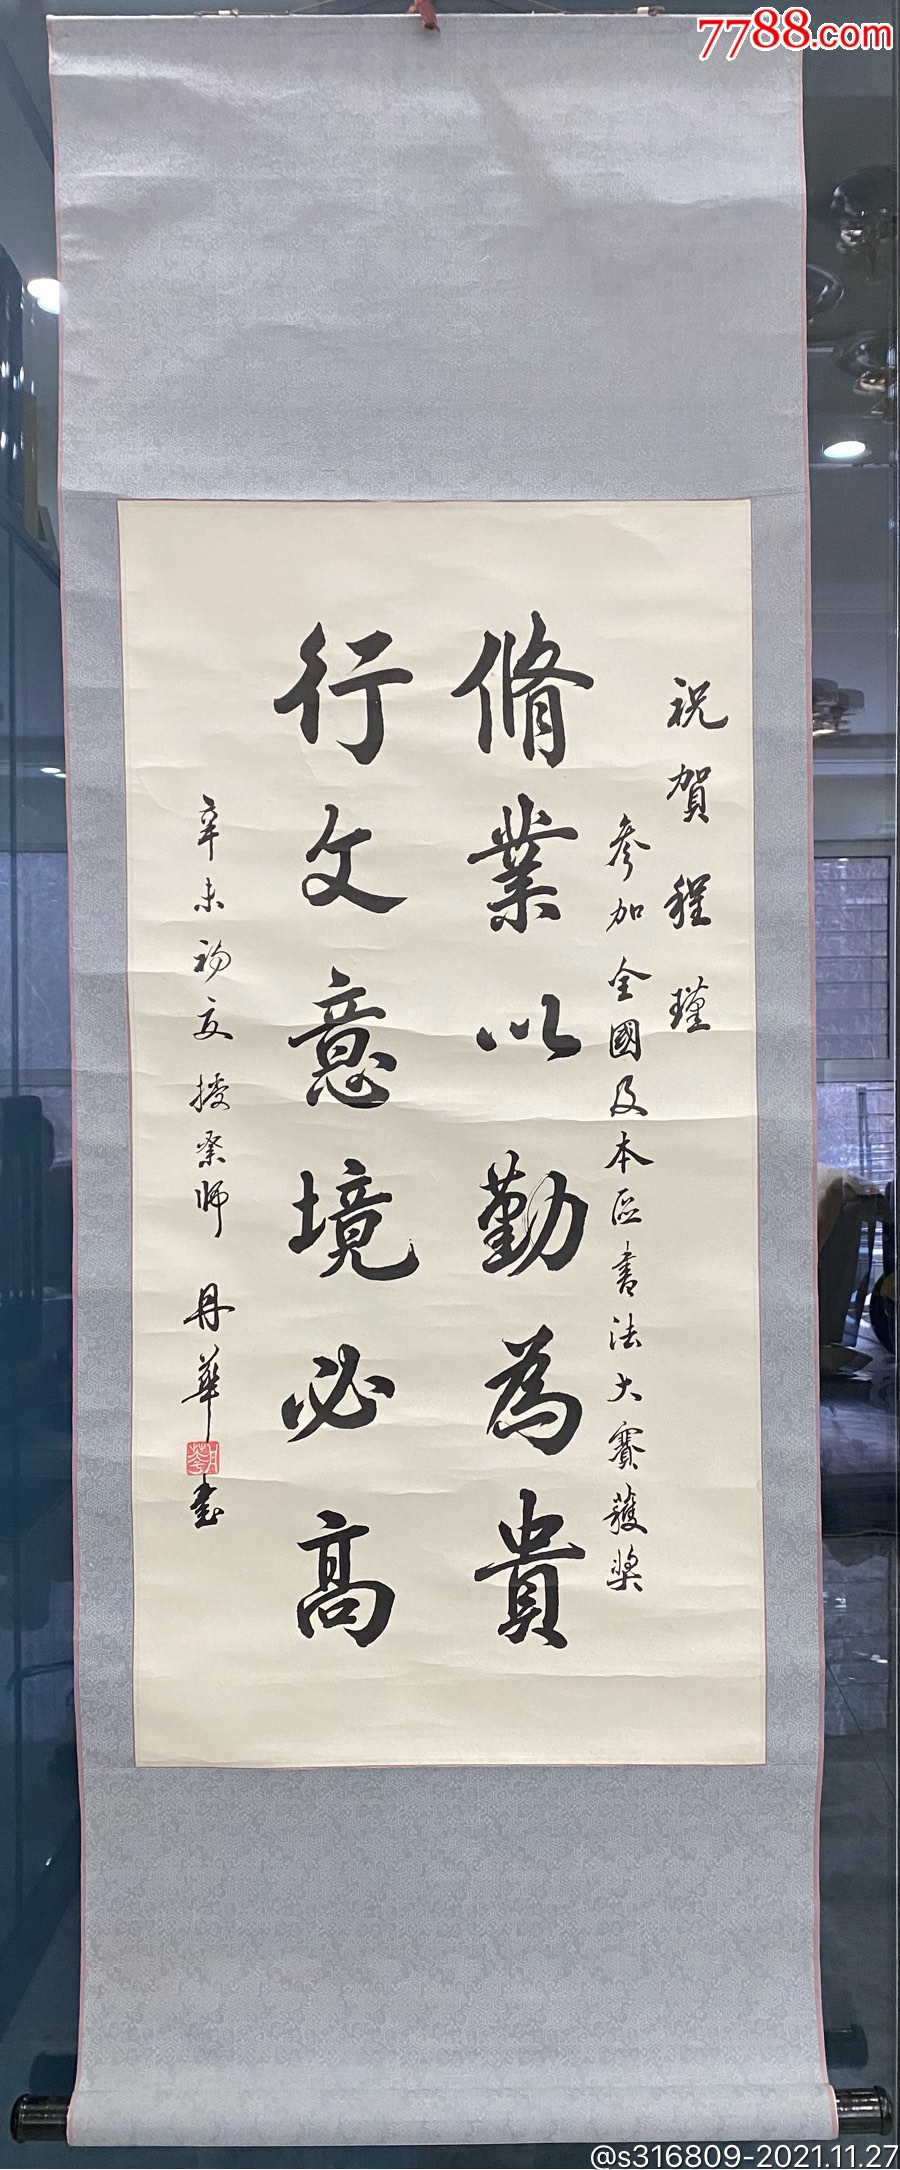 7788.com
祝賀程瑾
參加全國及本區書法大賽獲獎
脩業以勤為貴
行文意境必高
辛未初夏授業師 丹華書
@s316809-2021.11.27